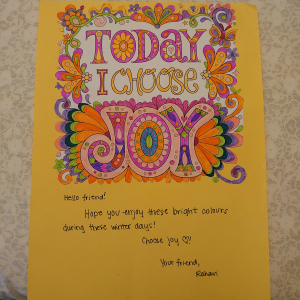 TODAY
I CHOOSE
JOY
Hello friend!
Hope you enjoy these bright colours
during these winter days!
Choose joy ♡!
Your friend,